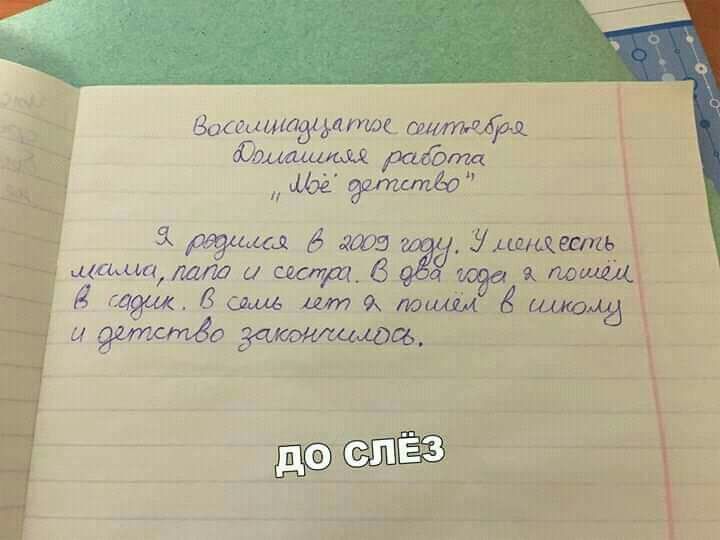 Восемнадцатое сентября
Домашняя работа
„Моё детство"
Я родился в 2009 году. У меня есть
мама, папа и сестра. В два года я пошёл
в садик. В семь лет я пошёл в школу
и детство закончилось.
ДО СЛЁЗ